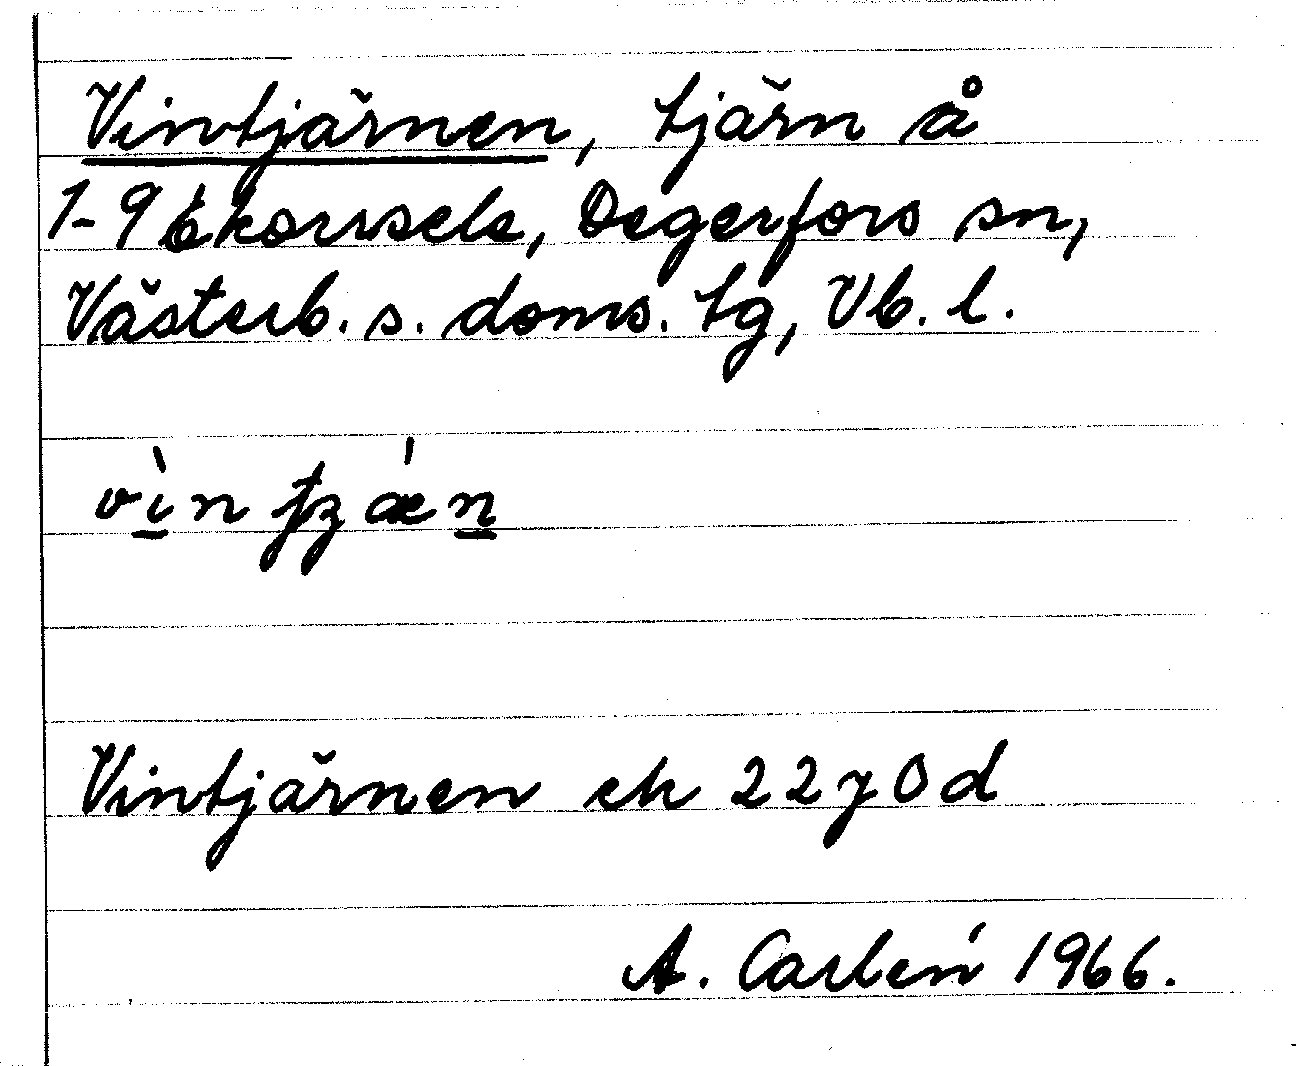 Vintjärnen, tjärn å
1-9 Ekorrsele, Degerfors sn,
Västerb. s. doms. tg, Vb. l.
Vintjärnen ek 22 7 0 d
A. Carlén 1966.